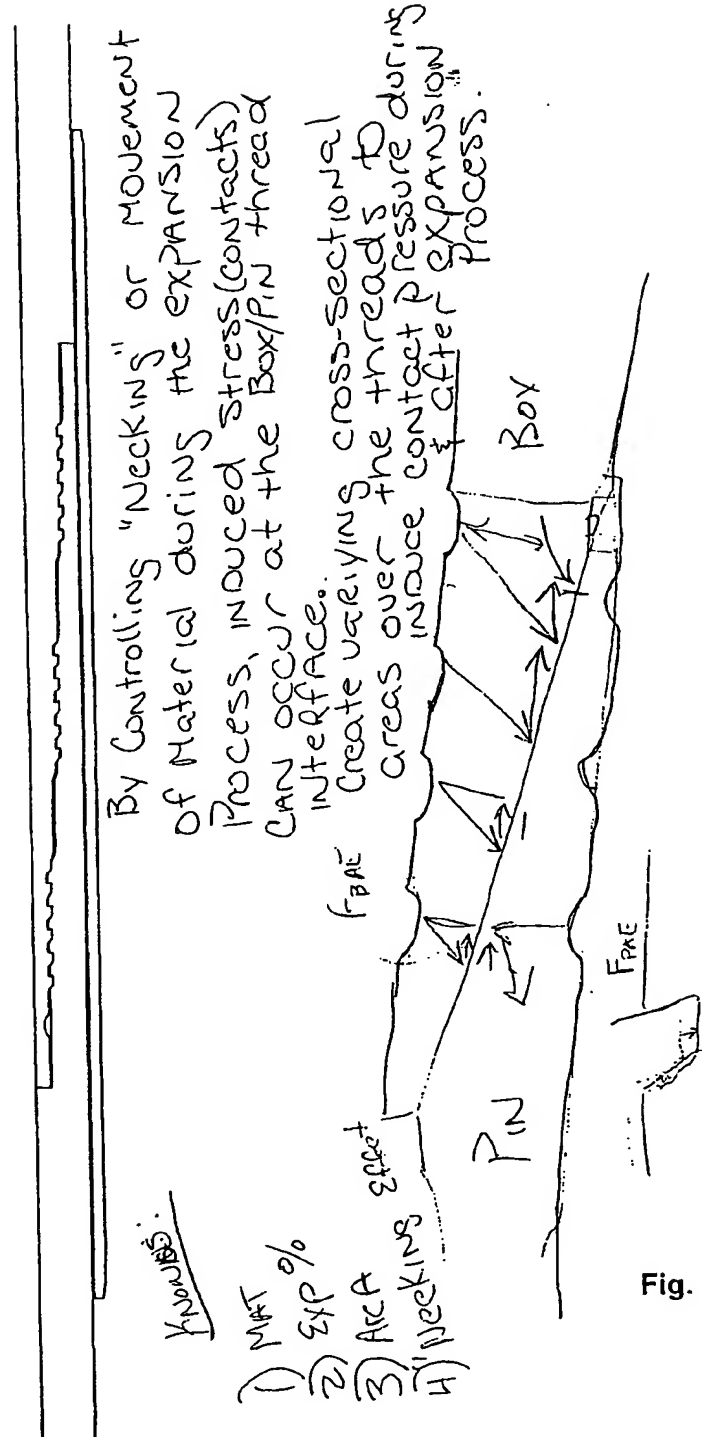 By Controlling "Necking" or movement
of Material during the expansion
Process, induced stress (contacts)
CAN occur at the Box/Pin thread
interface.
Create varying cross-sectional
areas over the threads to
induce contact pressure during
& after expansion
Process.
Knowns:
1) MAT
2) Exp %
3) Area
4) "Necking Effect
FBAE
Box
PIN
FPAE
Fig.